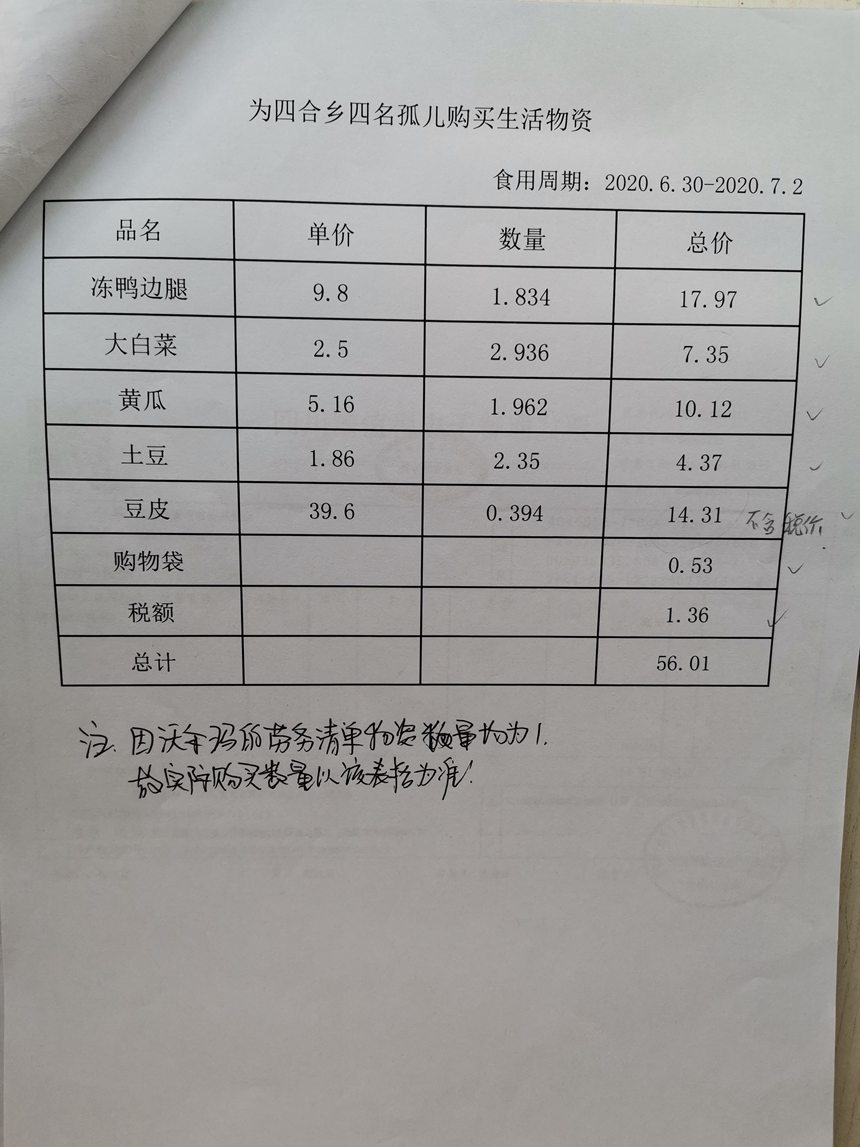 为四合乡四名孤儿购买生活物资
食用周期：2020.6.30-2020.7.2
品名 单价 数量 总价
冻鸭边腿 9.8 1.834 17.97
大白菜 2.5 2.936 7.35
黄瓜 5.16 1.962 10.12
土豆 1.86 2.35 4.37
豆皮 39.6 0.394 14.31 不含税价
购物袋 0.53
税额 1.36
总计 56.01
注.因沃尔玛的劳务清单物资数量均为1.
故实际购买数量以该表格为准!